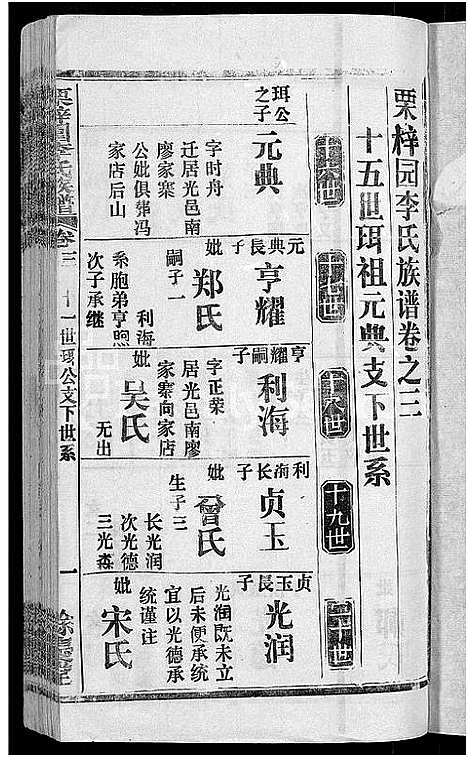 栗梓园李氏族谱卷之三
十五世珥祖元典支下世系
十九世
珥公
之子
元典
字时舟
迁居光邑南
廖家寨
公妣俱葬冯
家店后山
元典長子
亨耀
妣
郑氏
嗣子一
利海
系胞弟亨照
次子承继
亨耀嗣子
利海
字正荣
居光邑南廖
家寨向家店
妣
吴氏
无出
利海长子
贞玉
妣
曾氏
生子三
长光润
次光德
三光焱
贞玉長子
光润
光润既未立
后未便承统
宜以光德承
统谨注
妣
宋氏
栗梓園李氏族譜
卷三
十一世珥公支下世系
一